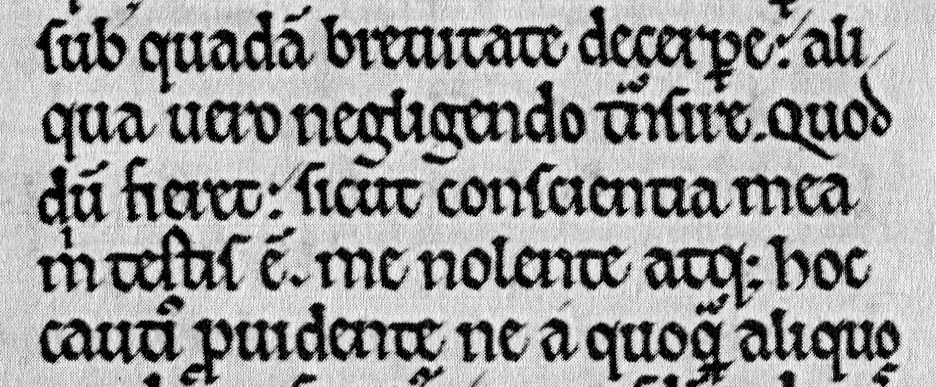 ſub quadā breuitate decerpe: ali
qua uero negligendo tͣnſire. Quod
dū fieret: ſicut conſcientia mea
m̍ teſtiſ ē. me nolente atq: hoc
cauti᷑ puidente ne a quoqͣ aliquo